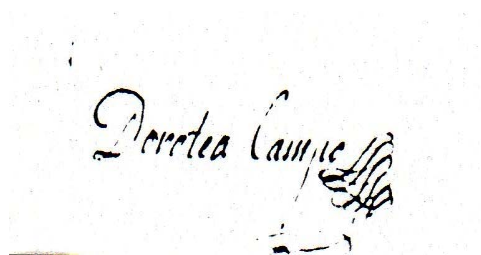 Dorotea Campo